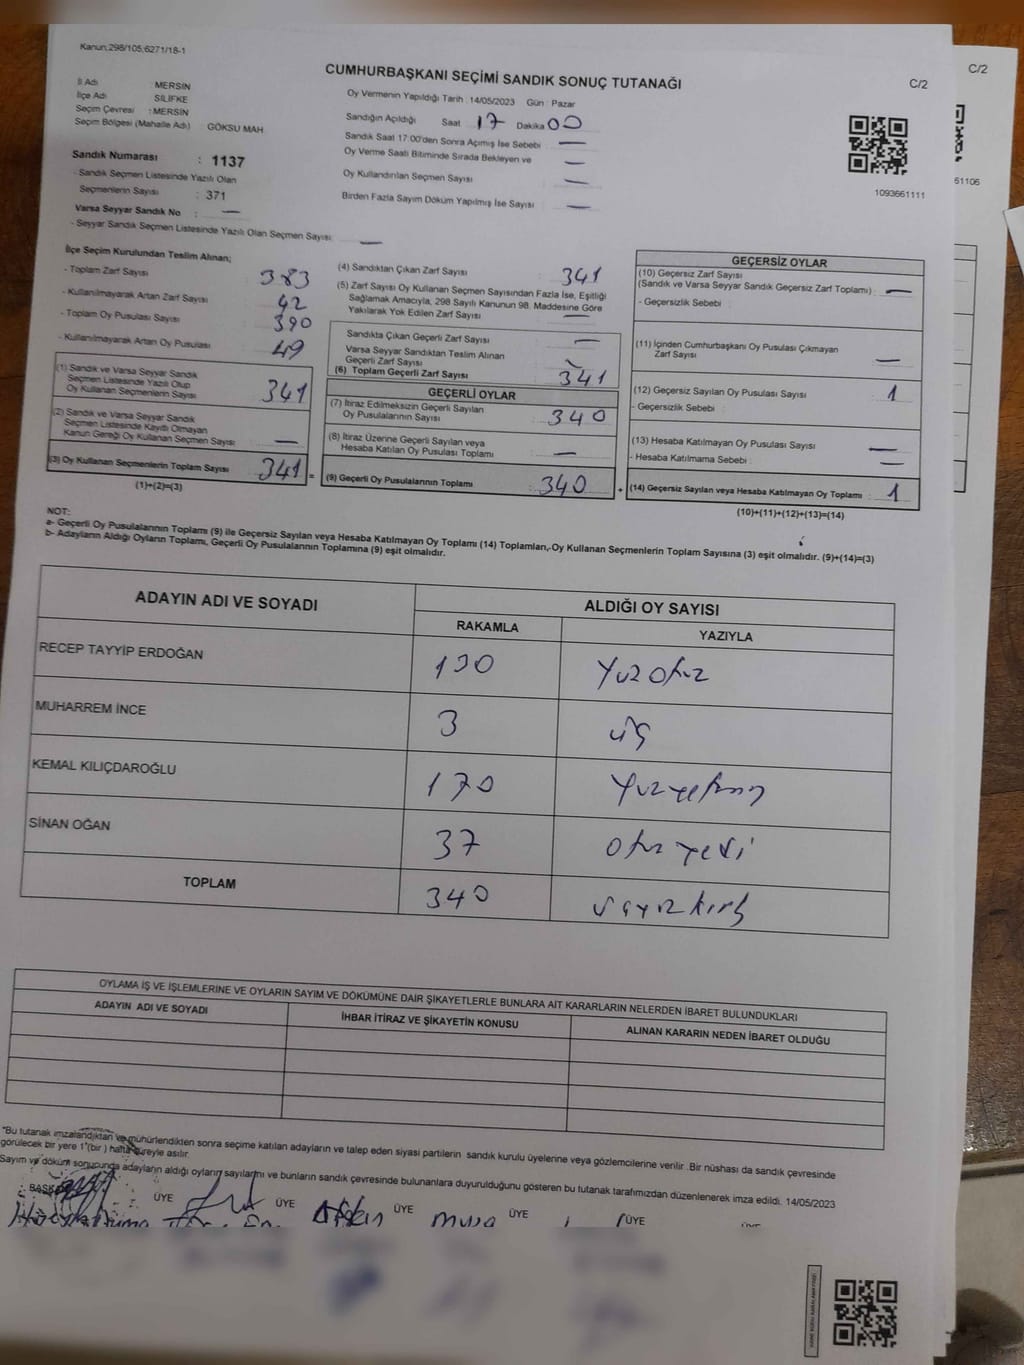 Kanun;298/105;6271/18-1
CUMHURBAŞKANI SEÇİMİ SANDIK SONUÇ TUTANAĞI
C/2
C/2
İl Adı MERSİN
İlçe Adı SİLİFKE
Seçim Çevresi : MERSİN
Seçim Bölgesi (Mahalle Adı) GÖKSU MAH.
Oy Vermenin Yapıldığı Tarih :14/05/2023 Gün : Pazar
Sandığın Açıldığı Saat 17 Dakika 00
Sandık Saat 17:00'den Sonra Açımış İse Sebebi —
Oy Verme Saati Bitiminde Sırada Bekleyen ve —
Oy Kullandırılan Seçmen Sayısı —
Birden Fazla Sayım Döküm Yapılmış İse Sayısı —
1093661111
61106
Sandık Numarası : 1137
- Sandık Seçmen Listesinde Yazılı Olan
Seçmenlerin Sayısı : 371
Varsa Seyyar Sandık No : —
- Seyyar Sandık Seçmen Listesinde Yazılı Olan Seçmen Sayısı —
İlçe Seçim Kurulundan Teslim Alınan;
- Toplam Zarf Sayısı 383
- Kullanılmayarak Artan Zarf Sayısı 42
- Toplam Oy Pusulası Sayısı 390
- Kullanılmayarak Artan Oy Pusulası 49
(1) Sandık ve Varsa Seyyar Sandık
Seçmen Listesinde Yazılı Olup
Oy Kullanan Seçmenlerin Sayısı 341
(2) Sandık ve Varsa Seyyar Sandık
Seçmen Listesinde Kayıtlı Olmayan
Kanun Gereği Oy Kullanan Seçmen Sayısı —
(3) Oy Kullanan Seçmenlerin Toplam Sayısı 341 =
(1)+(2)=(3)
(4) Sandıktan Çıkan Zarf Sayısı 341
(5) Zarf Sayısı Oy Kullanan Seçmen Sayısından Fazla İse, Eşitliği
Sağlamak Amacıyla, 298 Sayılı Kanunun 98. Maddesine Göre
Yakılarak Yok Edilen Zarf Sayısı —
Sandıkta Çıkan Geçerli Zarf Sayısı —
Varsa Seyyar Sandıktan Teslim Alınan
Geçerli Zarf Sayısı —
(6) Toplam Geçerli Zarf Sayısı 341
GEÇERLİ OYLAR
(7) İtiraz Edilmeksizin Geçerli Sayılan
Oy Pusulalarının Sayısı 340
(8) İtiraz Üzerine Geçerli Sayılan veya
Hesaba Katılan Oy Pusulası Toplamı —
(9) Geçerli Oy Pusulalarının Toplamı : 340 +
GEÇERSİZ OYLAR
(10) Geçersiz Zarf Sayısı
(Sandık ve Varsa Seyyar Sandık Geçersiz Zarf Toplamı) : —
- Geçersizlik Sebebi :
(11) İçinden Cumhurbaşkanı Oy Pusulası Çıkmayan
Zarf Sayısı —
(12) Geçersiz Sayılan Oy Pusulası Sayısı 1
- Geçersizlik Sebebi
(13) Hesaba Katılmayan Oy Pusulası Sayısı —
- Hesaba Katılmama Sebebi —
(14) Geçersiz Sayılan veya Hesaba Katılmayan Oy Toplamı : 1
(10)+(11)+(12)+(13)=(14)
NOT:
a- Geçerli Oy Pusulalarının Toplamı (9) ile Geçersiz Sayılan veya Hesaba Katılmayan Oy Toplamı (14) Toplamları, Oy Kullanan Seçmenlerin Toplam Sayısına (3) eşit olmalıdır. (9)+(14)=(3)
b- Adayların Aldığı Oyların Toplamı, Geçerli Oy Pusulalarının Toplamına (9) eşit olmalıdır.
ADAYIN ADI VE SOYADI ALDIĞI OY SAYISI
RAKAMLA YAZIYLA
RECEP TAYYİP ERDOĞAN 130 Yüz Otuz
MUHARREM İNCE 3 üç
KEMAL KILIÇDAROĞLU 170 Yüzyetmiş
SİNAN OĞAN 37 Otuz yedi
TOPLAM 340 üçyüz kırk
OYLAMA İŞ VE İŞLEMLERİNE VE OYLARIN SAYIM VE DÖKÜMÜNE DAİR ŞİKAYETLERLE BUNLARA AİT KARARLARIN NELERDEN İBARET BULUNDUKLARI
ADAYIN ADI VE SOYADI İHBAR İTİRAZ VE ŞİKAYETİN KONUSU ALINAN KARARIN NEDEN İBARET OLDUĞU
"Bu tutanak imzalandıktan ve mühürlendikten sonra seçime katılan adayların ve talep eden siyasi partilerin sandık kurulu üyelerine veya gözlemcilerine verilir .Bir nüshası da sandık çevresinde
görülecek bir yere 1"(bir ) hafta süreyle asılır.
Sayım ve döküm sonucunda adayların aldığı oyların sayılarını ve bunların sandık çevresinde bulunanlara duyurulduğunu gösteren bu tutanak tarafımızdan düzenlenerek imza edildi. 14/05/2023
ÜYE ÜYE ÜYE ÜYE ÜYE
Musa